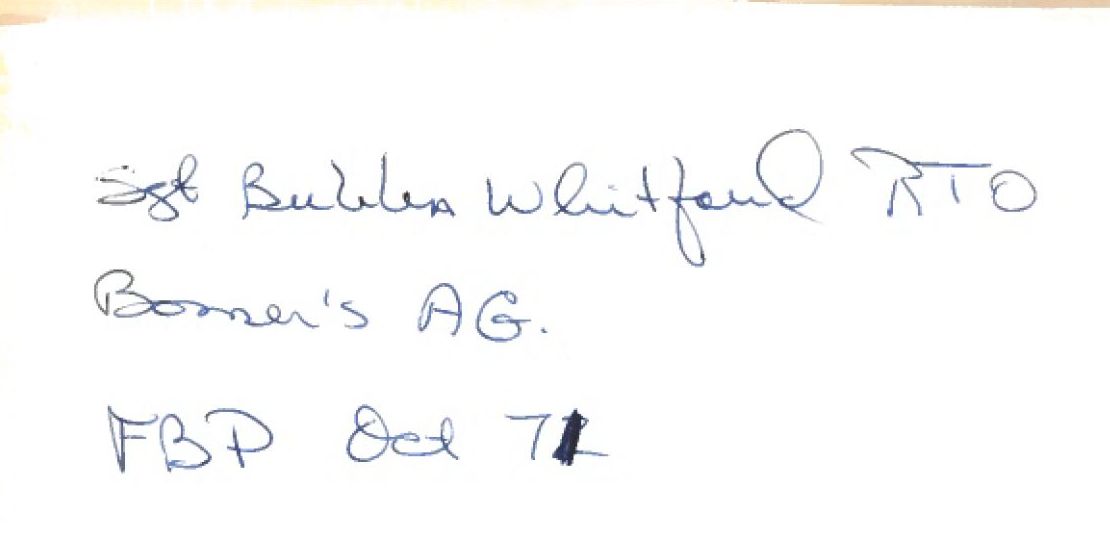 Sgt Whitford RTO
Bonner's AG.
FBP Oct 71